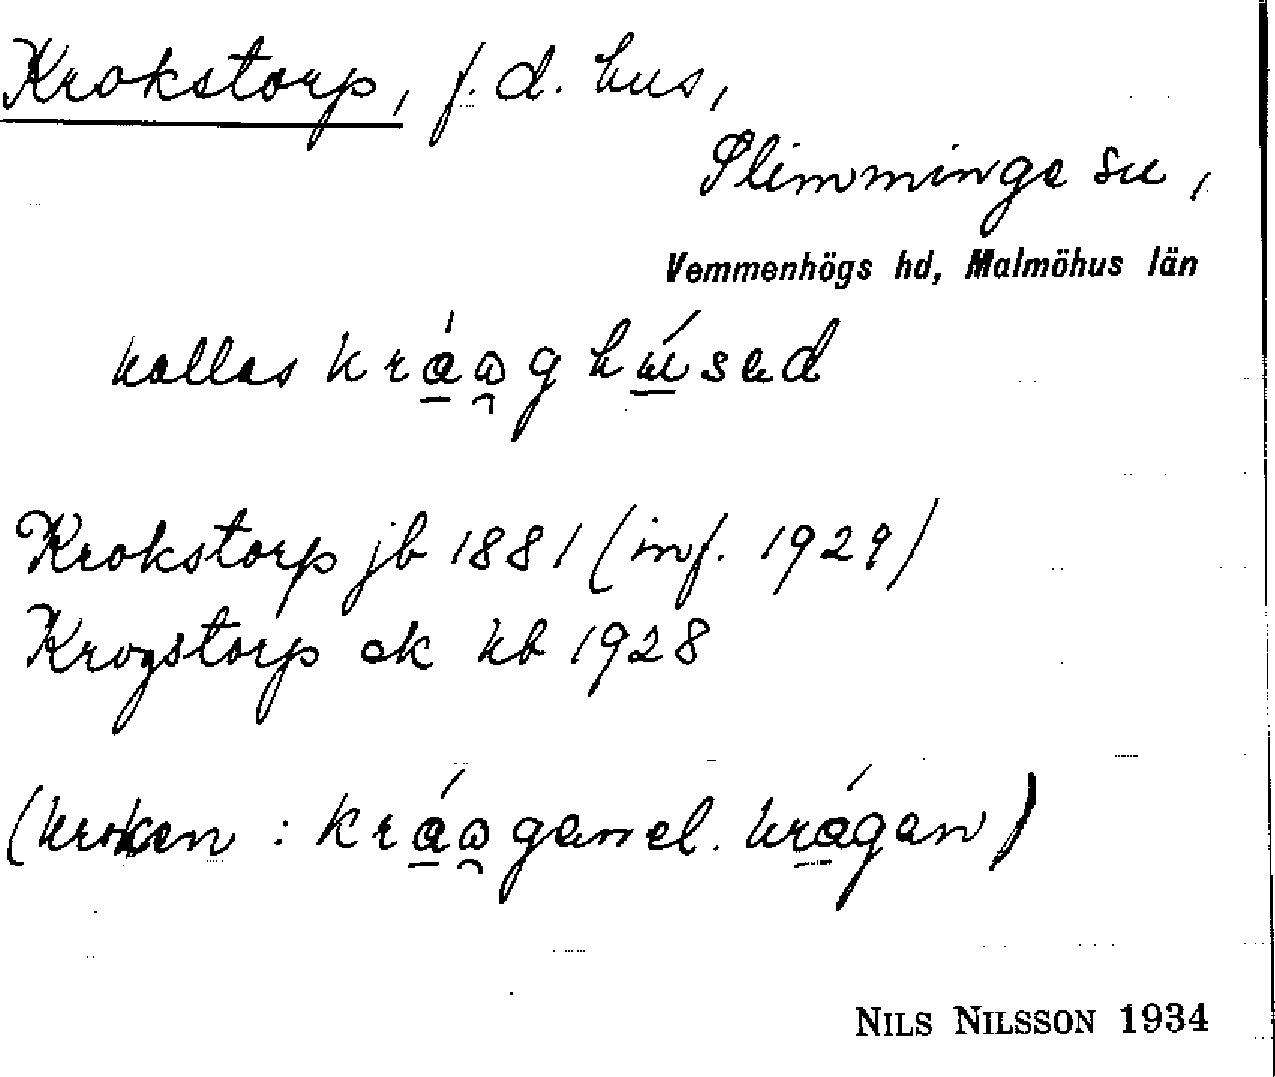 Krokstorp, f.d. hus,
Slimminge sn,
Vemmenhögs hd, Malmöhus län
kallas kráωg húsed
Krokstorp jb 1881 (inf. 1929)
Krogstorp ek kb 1928
(kroken : kráωgan el. krågan)
NILS NILSSON 1934